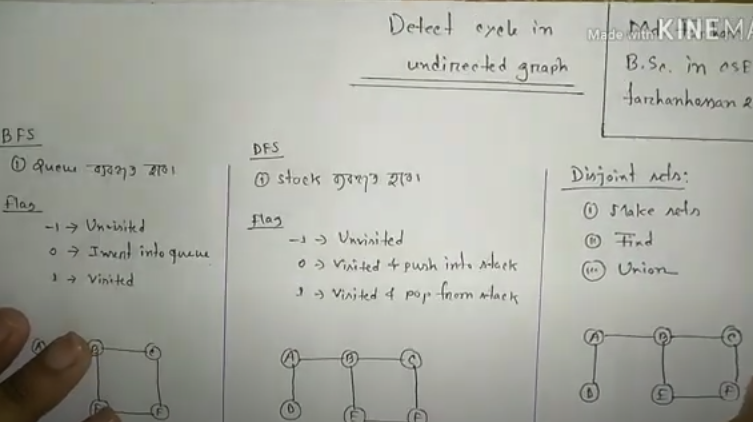 Detect cycle in
undirected graph
Made with KINEMA
B.Sc. in CSE
farhanhasan 2
BFS
① Queue ব্যবহৃত হবে।
Flag
-1 → Unvisited
0 → Insert into queue
1 → Visited
A B C
E F
DFS
① Stack ব্যবহৃত হবে।
Flag
-1 → Unvisited
0 → Visited & push into stack
1 → Visited & pop from stack
A B C
D E F
Disjoint sets:
① Make sets
② Find
③ Union
A B C
D E F